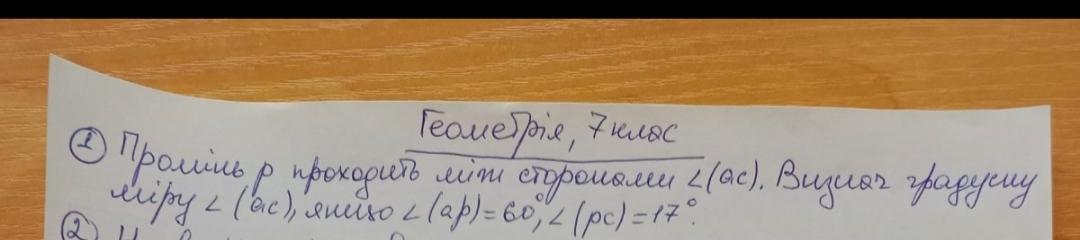 Геометрія, 7 клас
① Промінь p проходить між сторонами ∠(ac). Визнач градусну
міру ∠(ac), якщо ∠(ap)=60°, ∠(pc)=17°.
②